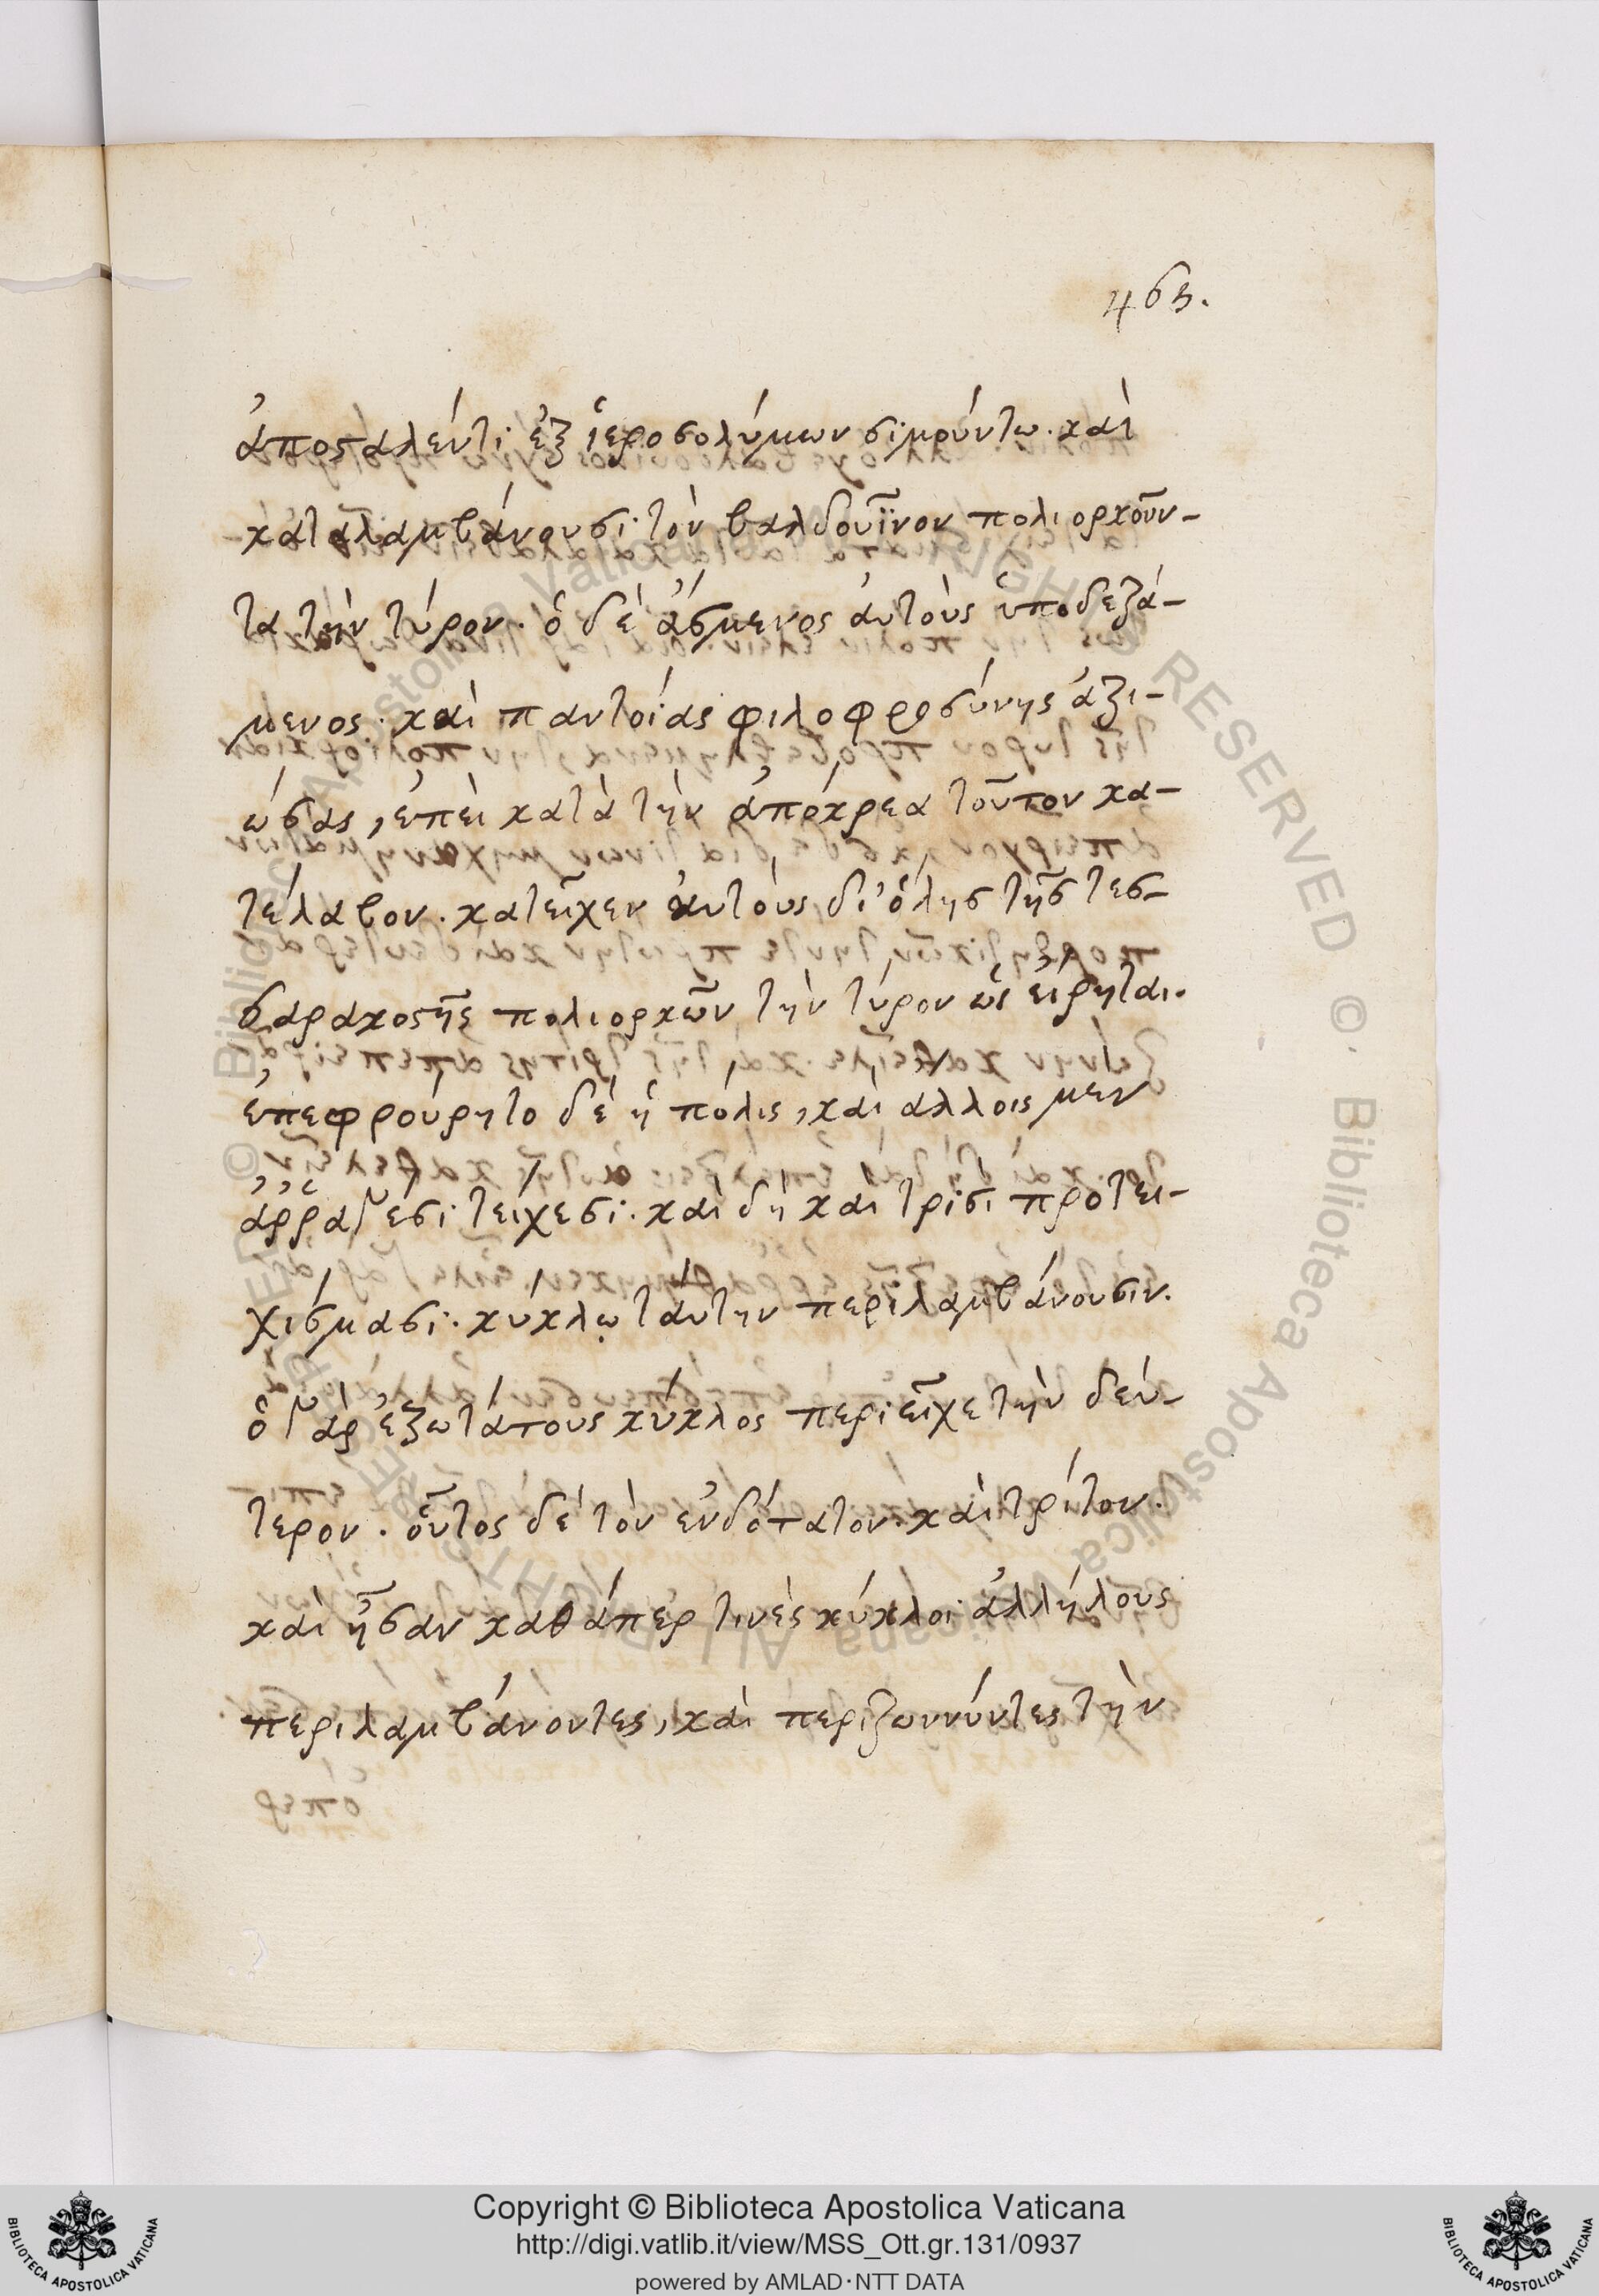 463.
ἀποσταλέντι ἐξ ἱεροσολύμων σιμούντω. καὶ
καταλαμβάνουσι τὸν βαλδουῖνον πολιορκοῦν-
τα τὴν τύρον. ὁ δὲ ἄσμενος αὐτοὺς ὑποδεξά-
μενος. καὶ παντοίας φιλοφροσύνης ἀξι-
ώσας, ἐπεὶ κατὰ τὴν ἀπόκρεα τοῦτον κα-
τέλαβον. κατεῖχεν αὐτοὺς δι' ὅλης τῆς τεσ-
σαρακοστῆς πολιορκῶν τὴν τύρον ὡς εἴρηται.
ἐπεφρούρητο δὲ ἡ πόλις, καὶ ἄλλοις μὲν
ἀῤῥαγέσι τείχεσι. καὶ δὴ καὶ τρισὶ προτει-
χίσμασι. κύκλῳ ταύτην περιλαμβάνουσιν.
ὁ γὰρ ἐξωτάτους κύκλος περιεῖχε τὴν δεύ-
τερον. οὗτος δὲ τὸν ἐνδότατον. καὶ τρίτον.
καὶ ἦσαν καθάπερ τινὲς κύκλοι ἀλλήλους
περιλαμβάνοντες, καὶ περιζωννύντες τὴν
Copyright © Biblioteca Apostolica Vaticana
http://digi.vatlib.it/view/MSS_Ott.gr.131/0937
powered by AMLAD·NTT DATA
BIBLIOTECA APOSTOLICA VATICANA
BIBLIOTECA APOSTOLICA VATICANA